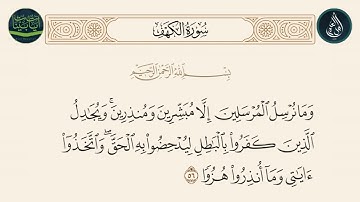 سُورَةُ الكَهْفِ
بِسْمِ اللَّهِ الرَّحْمَٰنِ الرَّحِيمِ
وَمَا نُرْسِلُ الْمُرْسَلِينَ إِلَّا مُبَشِّرِينَ وَمُنذِرِينَ ۚ وَيُجَٰدِلُ
الَّذِينَ كَفَرُوا۟ بِالْبَٰطِلِ لِيُدْحِضُوا۟ بِهِ الْحَقَّ ۖ وَاتَّخَذُوٓا۟
ءَايَٰتِى وَمَآ أُنذِرُوا۟ هُزُوًا ٥٦